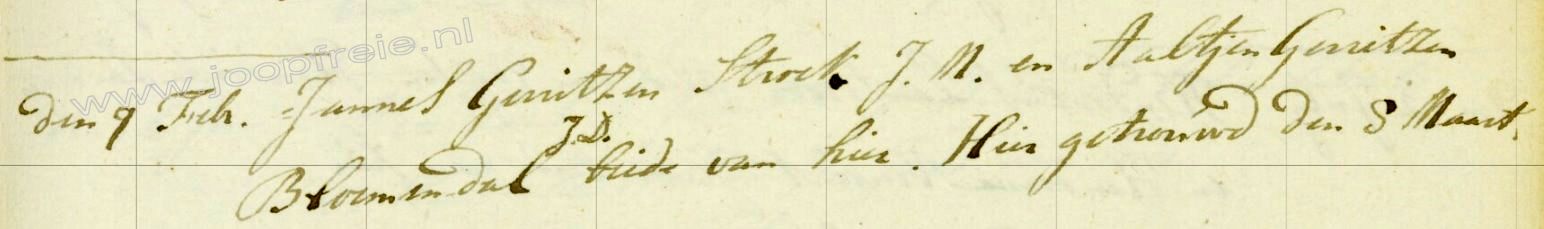 www.joopfreie.nl
den 9 Febr. Jannes Gerritzen Stroek J. M. en Aaltjen Gerritzen
Bloemendal J.D. beide van hier. Hier getrouwd den 8 Maart.